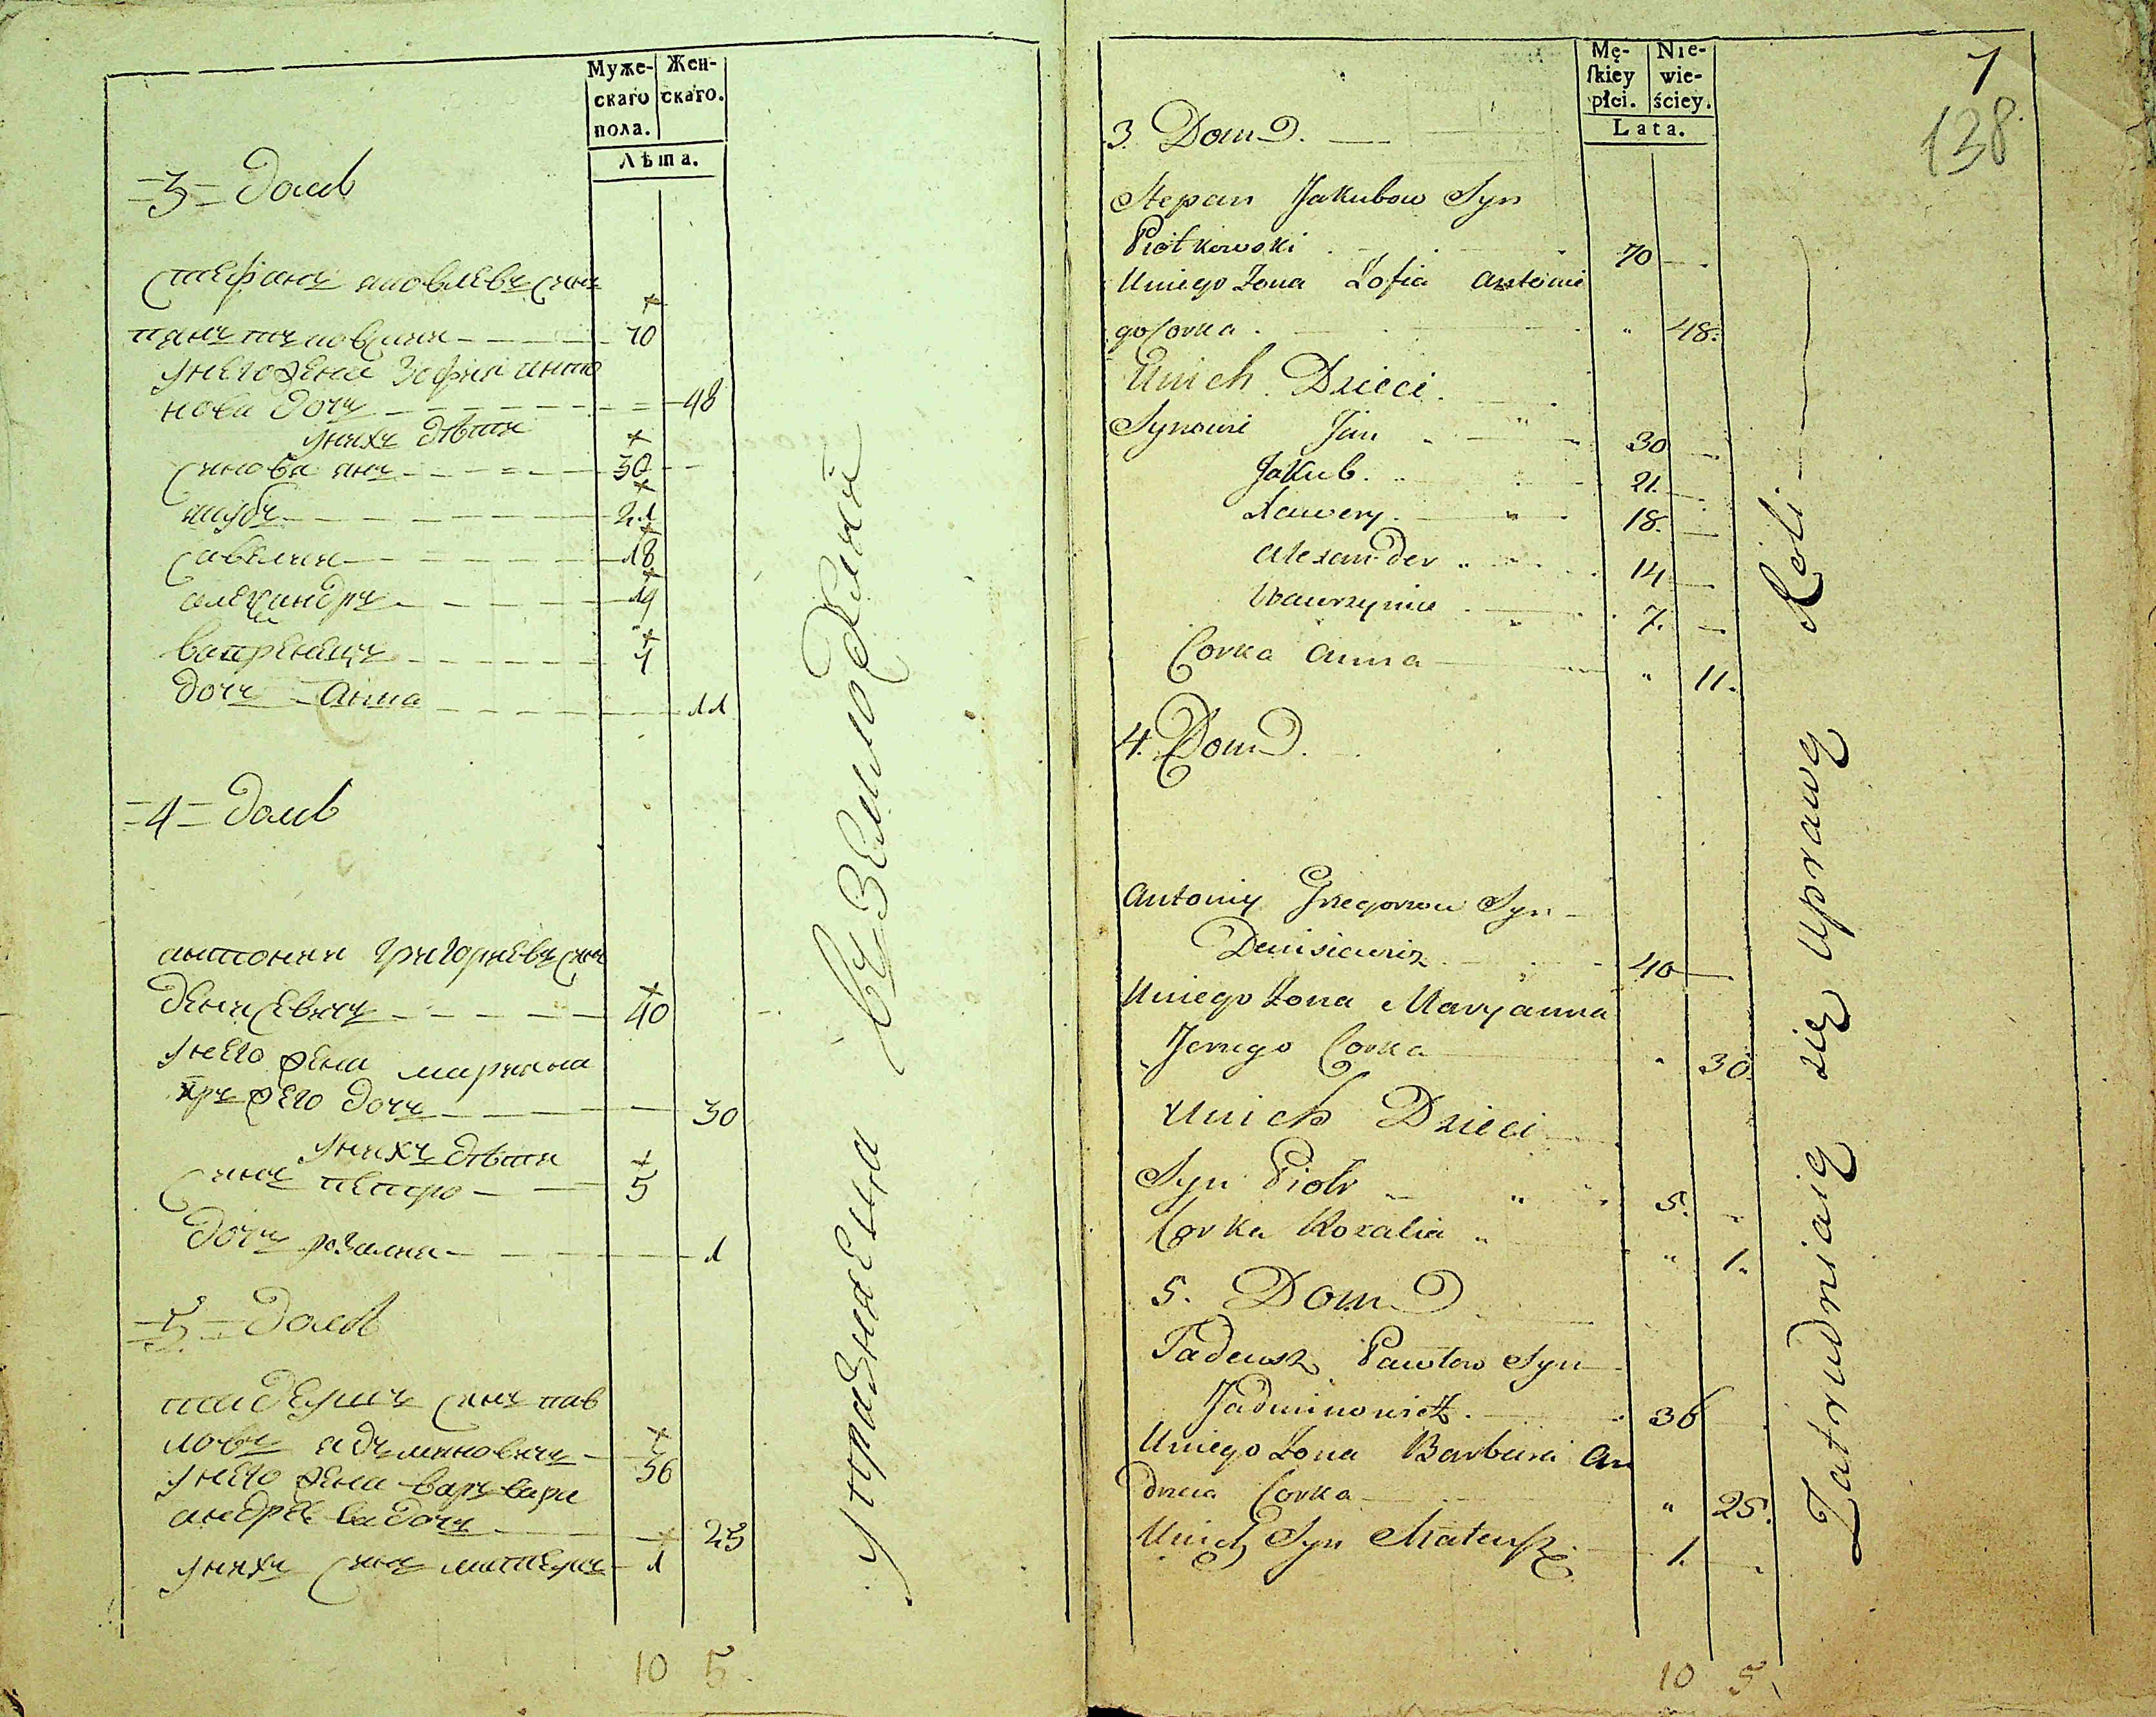 Муже-
скаго
пола.
Жен-
скаго.
Лѣта.
=3= Домъ
Стефанъ яковлевъ сынъ
70
у него жена Зофия анто
нова дочь 48
у нихъ дѣти
Синовя янъ 30
якубъ 21
18
александръ 14
вапренецъ 7
дочь Анна 11
=4= Домъ
антонии григориевъ сынъ
денисевичъ 40
у него жена марияна
дочь 30
у нихъ дѣти
Синъ петро 5
дочь розалия 1
=5= Домъ
тадеушъ синъ пав
ловъ ядъминовичъ 36
у него жена варъвара
андрѣева дочь 25
у нихъ синъ матеушъ 1
упражняеца въ Землодѣлии
10 5
Mę-
skiey
płci.
Nie-
wie-
ściey.
Lata.
7
138
3. Dom
Stepan Jakubow Syn
Piotkowski 70
Uniego Zona Zofia Antonie
go Corka 48.
Unich Dzieci
Synowie Jan 30
Jakub 21.
Xawery 18.
Alexander 14
Wawrzyniec 7.
Corka Anna 11.
4. Dom
Antoniy Grzegorzow Syn
Denisiewicz 40
Uniego Zona Maryanna
Jerzego Corka 30.
Unich Dzieci
Syn Piotr 5.
Corka Rozalia 1.
5. Dom
Tadeusz Pawłow Syn
Jadminowicz 36
Uniego Zona Barbara An
drzeia Corka 25.
Unich Syn Mateusz 1.
Zatrudniaią się uprawą Roli
10 5